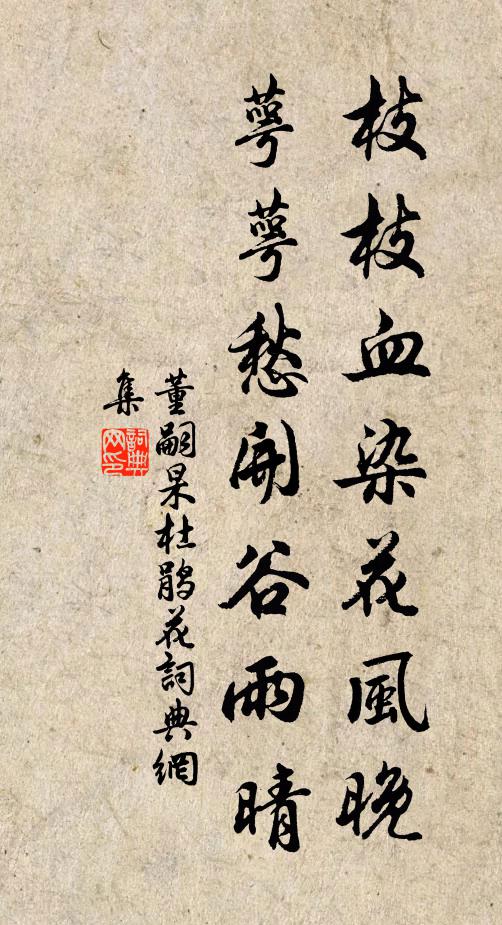 枝枝血染花風晚
萼萼愁開谷雨晴
董嗣杲杜鵑花詞典網
集
詞典
网印